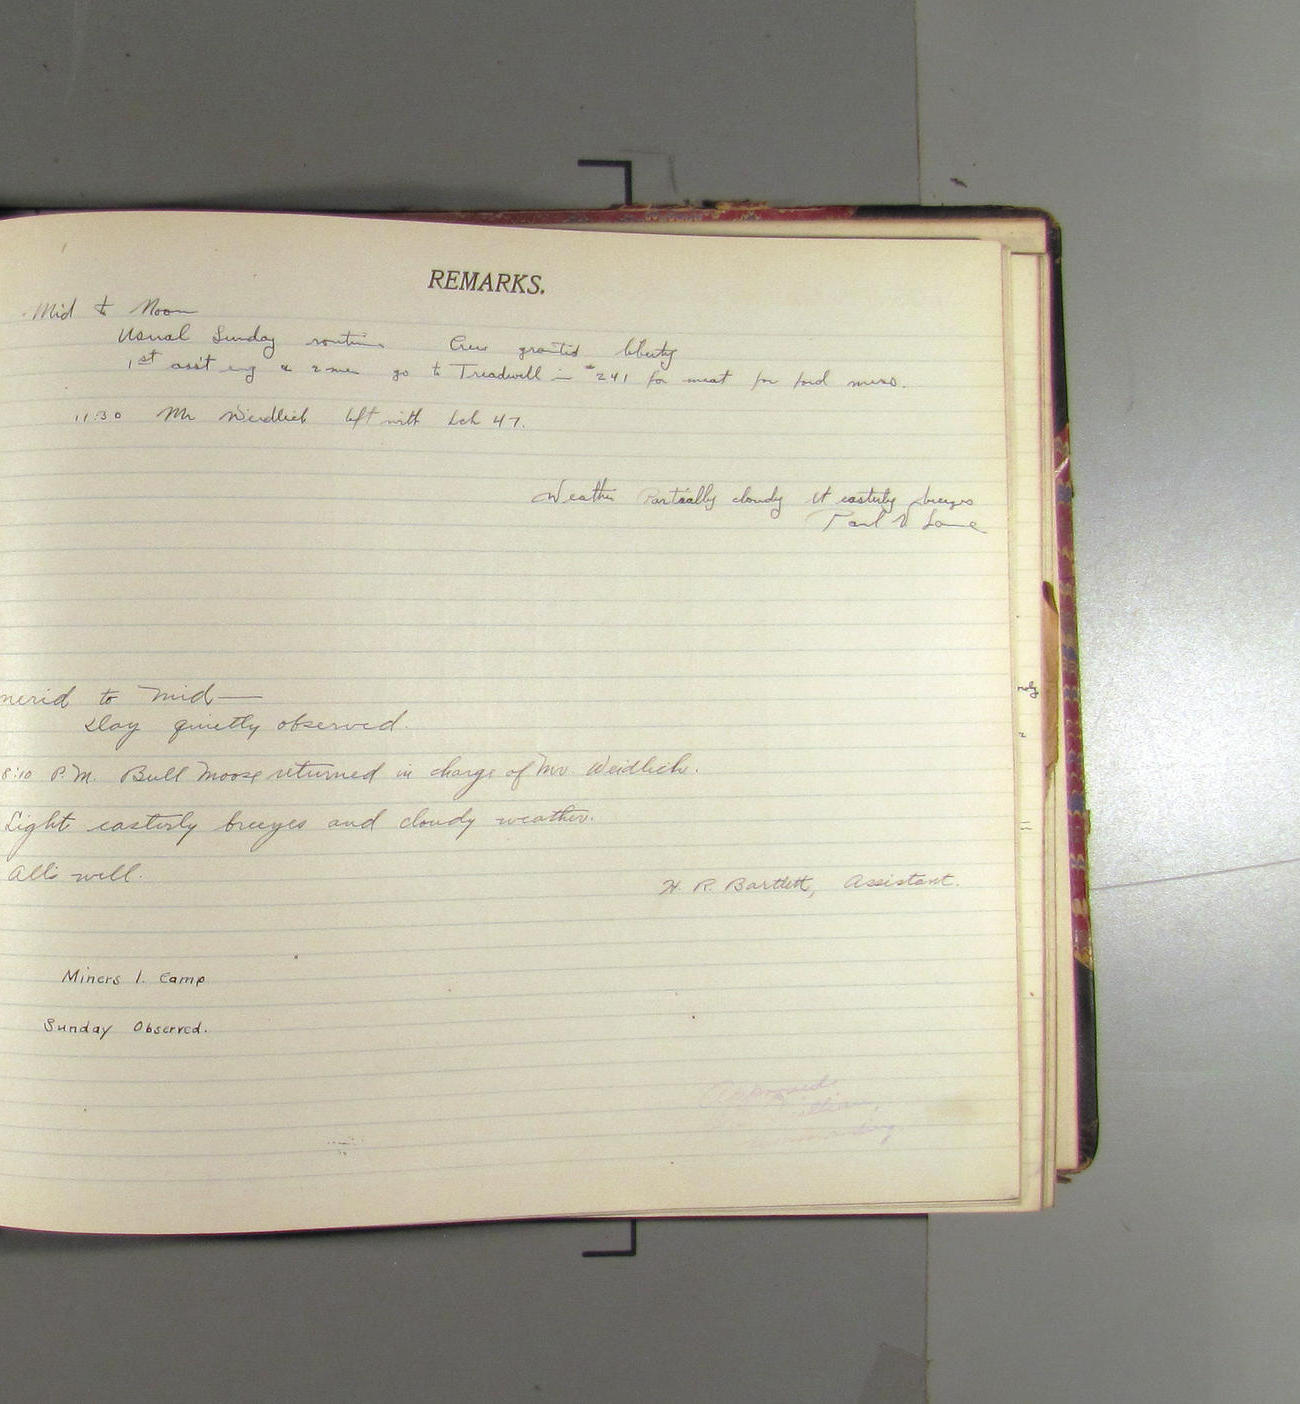 REMARKS.
Mid to Noon
Usual Sunday routine Crew granted liberty
1st ass't eng & 2 men go to Treadwell in #241 for meat for ford mess.
11:30 Mr Weidlich left with Lch 47.
Weather Partially cloudy lt easterly breezes
Paul V Lane
merid to mid—
Day quietly observed.
8:10 P.M. Bull Moose returned in charge of Mr. Weidlich.
Light easterly breezes and cloudy weather.
All's well.
H. R. Bartlett, Assistant.
Miners I. Camp
Sunday Observed.
Approved